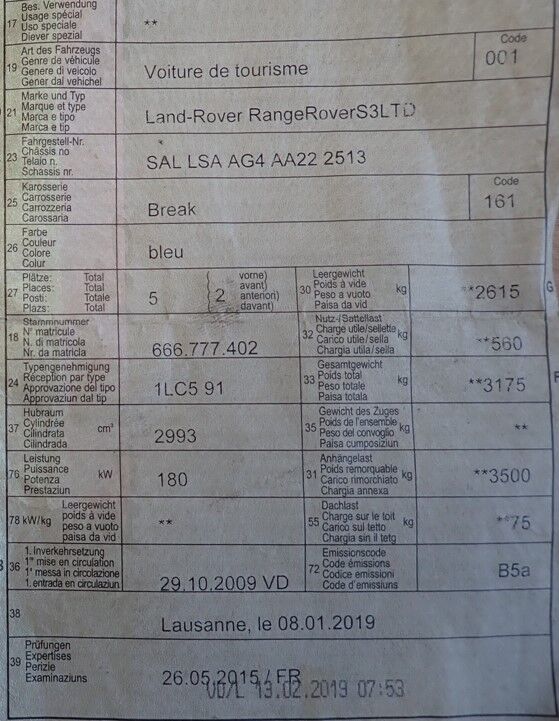 Bes. Verwendung
Usage spécial
17 Uso speciale **
Diever spezial
Art des Fahrzeugs Code
Genre de véhicule 001
19 Genere di veicolo Voiture de tourisme
Gener dal vehichel
Marke und Typ
21 Marque et type Land-Rover RangeRoverS3LTD
Marca e tipo
Marca e tip
Fahrgestell-Nr.
23 Châssis no SAL LSA AG4 AA22 2513
Telaio n.
Schassis nr.
Karosserie Code
25 Carrosserie Break 161
Carrozzeria
Carossaria
Farbe
26 Couleur bleu
Colore
Colur
Plätze: Total vorne) Leergewicht
27 Places: Total 5 ( 2 avant) 30 Poids à vide kg **2615 G
Posti: Totale anteriori) Peso a vuoto
Plazs: Total davant) Paisa da vid
Stammnummer Nutz-/Sattellast
18 N° matricule 666.777.402 32 Charge utile/sellette kg **560
N. di matricola Carico utile/sella
Nr. da matricla Chargia utila/sella
Typengenehmigung Gesamtgewicht
24 Réception par type 1LC5 91 33 Poids total kg **3175
Approvazione del tipo Peso totale
Approvaziun dal tip Paisa totala
Hubraum Gewicht des Zuges
37 Cylindrée cm³ 2993 35 Poids de l'ensemble kg **
Cilindrata Peso del convoglio
Cilindrada Paisa cumposiziun
Leistung Anhängelast
76 Puissance kW 180 31 Poids remorquable kg **3500
Potenza Carico rimorchiato
Prestaziun Chargia annexa
Leergewicht Dachlast
78 kW/kg poids à vide ** 55 Charge sur le toit kg **75
peso a vuoto Carico sul tetto
paisa da vid Chargia sin il tetg
1. Inverkehrsetzung Emissionscode
36 1re mise en circulation 29.10.2009 VD 72 Code émissions B5a
1a messa in circolazione Codice emissioni
1. entrada en circulaziun Code d'emissiuns
38 Lausanne, le 08.01.2019
Prüfungen
39 Expertises 26.05.2015 / FR
Perizie
Examinaziuns VD/L 13.02.2019 07:53